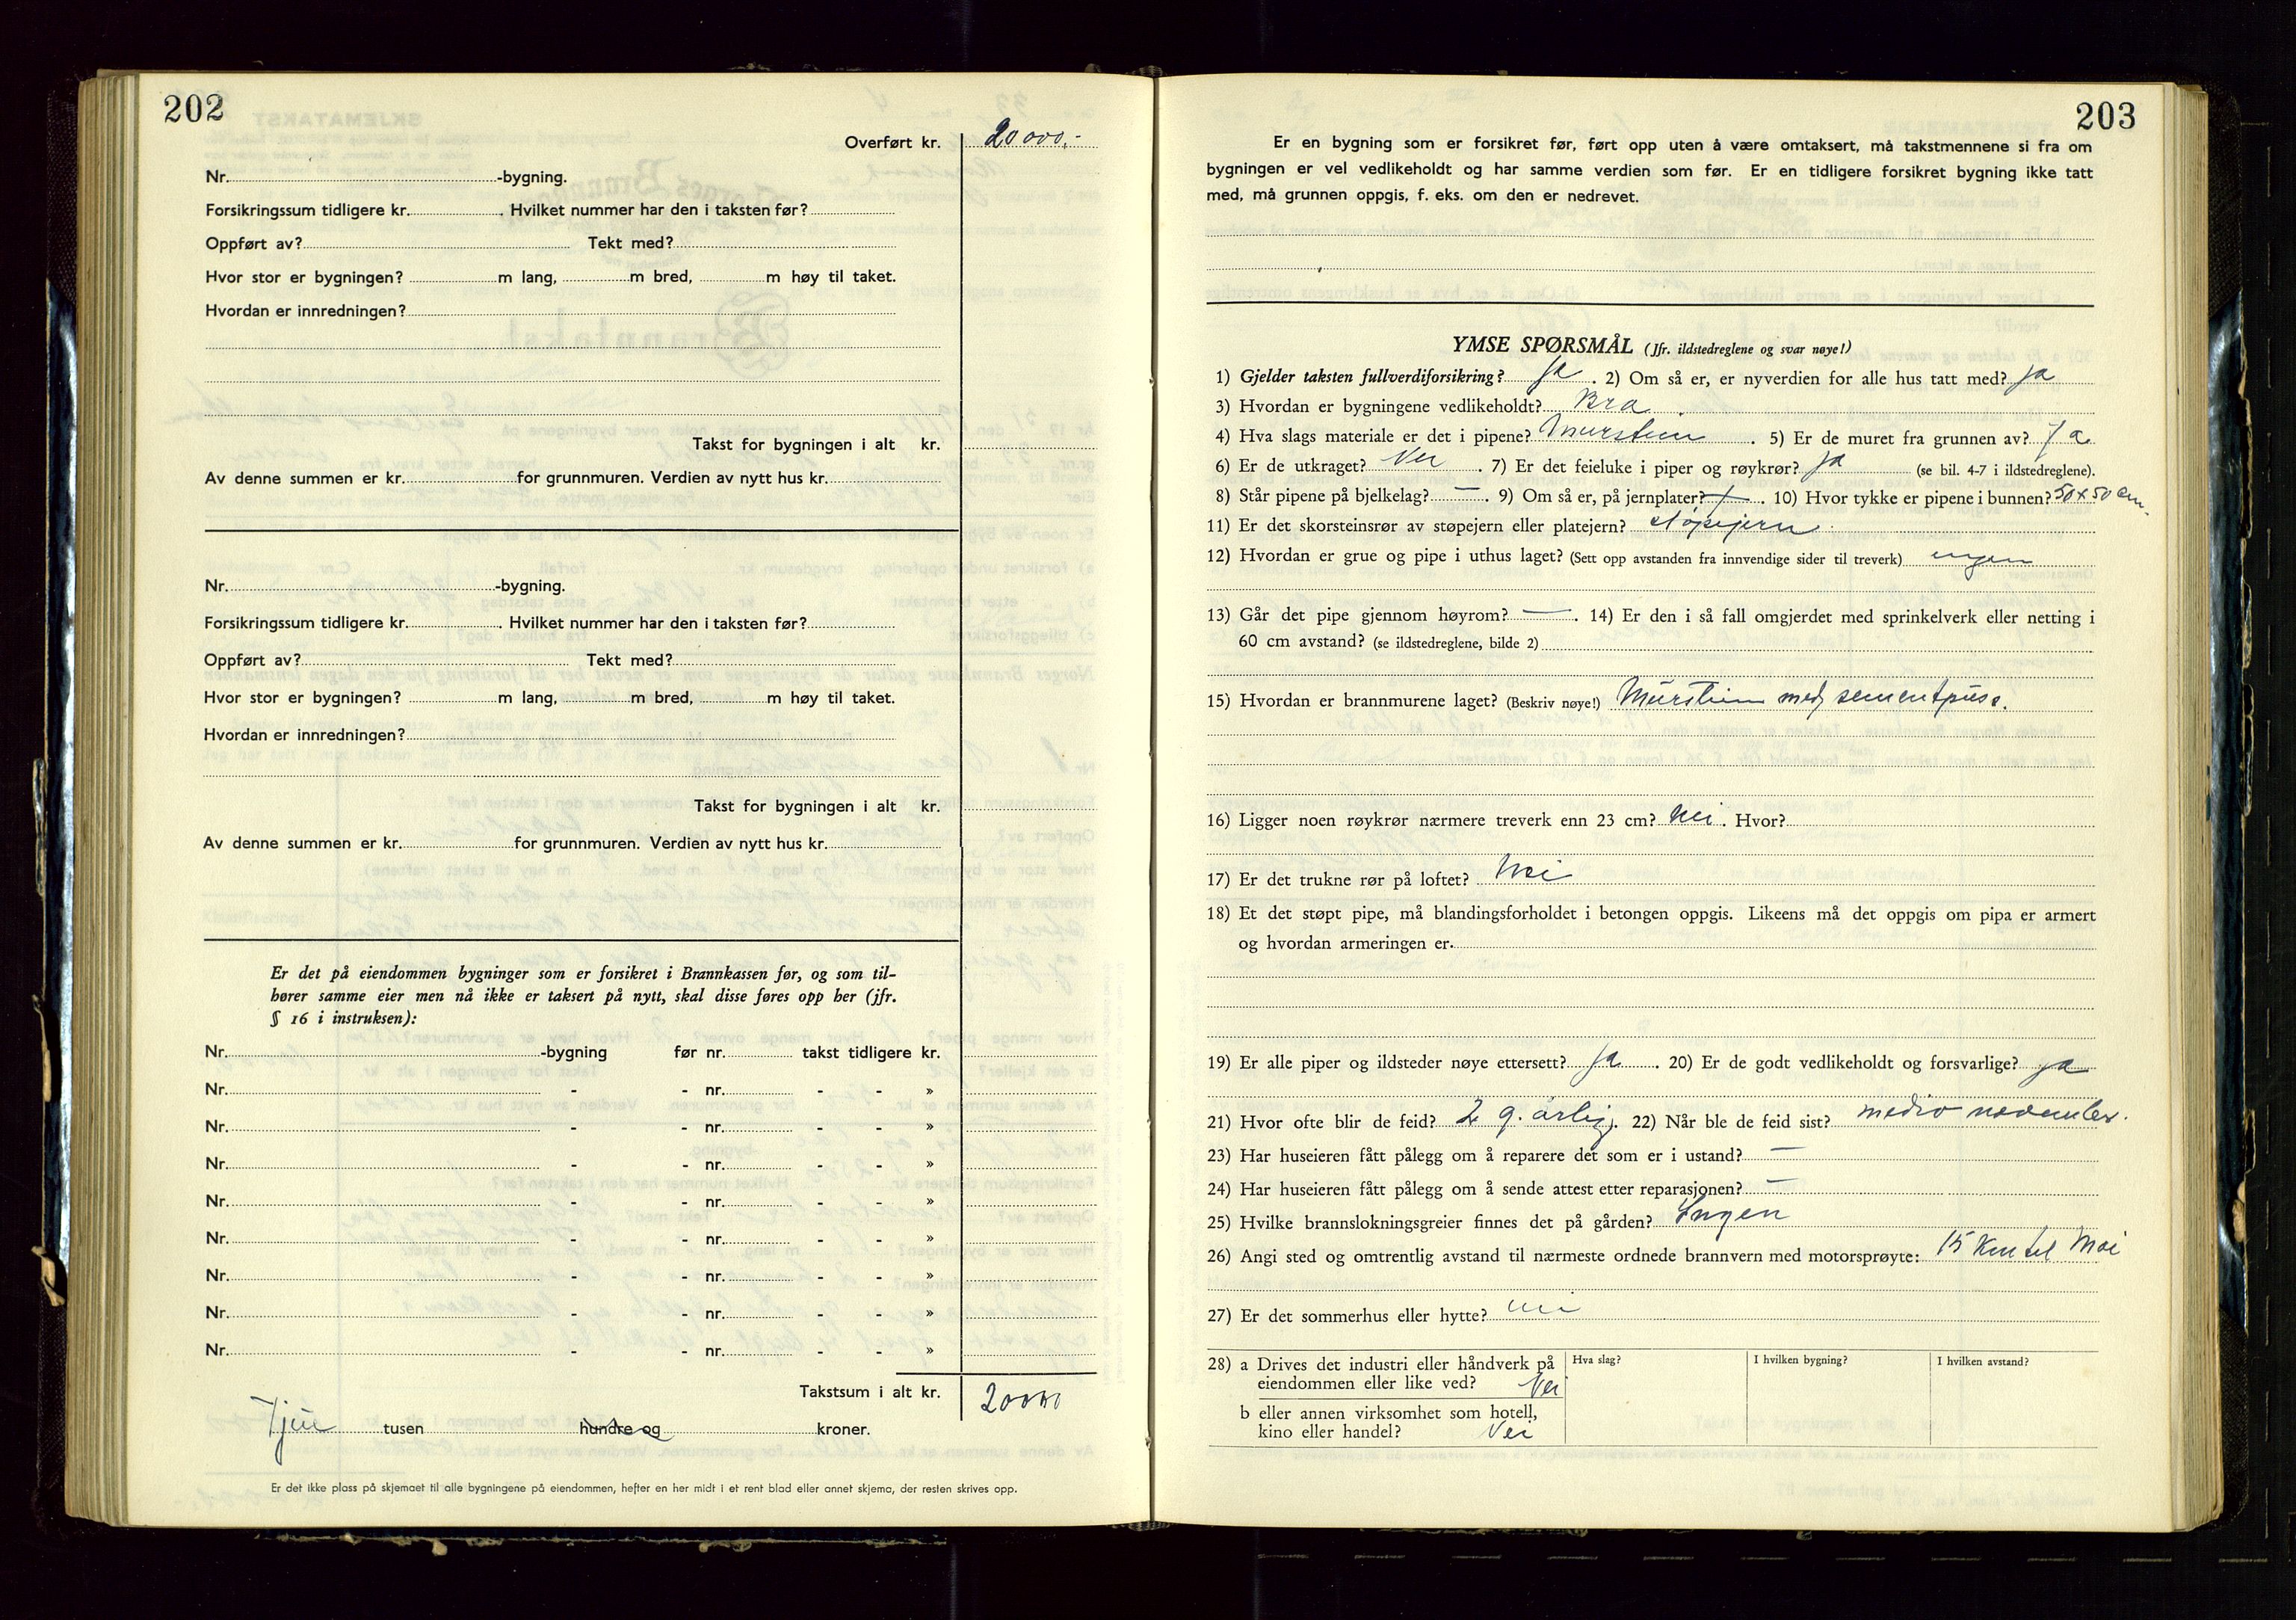 202
Overført kr. 20000.-
Nr. -bygning.
Forsikringssum tidligere kr. . Hvilket nummer har den i taksten før?
Oppført av? Tekt med?
Hvor stor er bygningen? m lang, m bred, m høy til taket.
Hvordan er innredningen?
Takst for bygningen i alt kr.
Av denne summen er kr. for grunnmuren. Verdien av nytt hus kr.
Nr. -bygning.
Forsikringssum tidligere kr. . Hvilket nummer har den i taksten før?
Oppført av? Tekt med?
Hvor stor er bygningen? m lang, m bred, m høy til taket.
Hvordan er innredningen?
Takst for bygningen i alt kr.
Av denne summen er kr. for grunnmuren. Verdien av nytt hus kr.
Er det på eiendommen bygninger som er forsikret i Brannkassen før, og som til-
hører samme eier men nå ikke er taksert på nytt, skal disse føres opp her (jfr.
§ 16 i instruksen):
Nr. -bygning før nr. takst tidligere kr.
Nr. - - nr. - - »
Nr. - - nr. - - »
Nr. - - nr. - - »
Nr. - - nr. - - »
Nr. - - nr. - - »
Nr. - - nr. - - »
Nr. - - nr. - - »
Nr. - - nr. - - »
Takstsum i alt kr. 20000
Tjue tusen hundre og kroner.
Er det ikke plass på skjemaet til alle bygningene på eiendommen, hefter en her midt i et rent blad eller annet skjema, der resten skrives opp.
203
Er en bygning som er forsikret før, ført opp uten å være omtaksert, må takstmennene si fra om
bygningen er vel vedlikeholdt og har samme verdien som før. Er en tidligere forsikret bygning ikke tatt
med, må grunnen oppgis, f. eks. om den er nedrevet.
YMSE SPØRSMÅL (Jfr. ildstedreglene og svar nøye!)
1) Gjelder taksten fullverdiforsikring? ja . 2) Om så er, er nyverdien for alle hus tatt med? ja
3) Hvordan er bygningene vedlikeholdt? Bra.
4) Hva slags materiale er det i pipene? Murstein . 5) Er de muret fra grunnen av? Ja
6) Er de utkraget? Nei . 7) Er det feieluke i piper og røykrør? ja (se bil. 4-7 i ildstedreglene).
8) Står pipene på bjelkelag? — . 9) Om så er, på jernplater? — . 10) Hvor tykke er pipene i bunnen? 50x50 cm.
11) Er det skorsteinsrør av støpejern eller platejern? støpejern
12) Hvordan er grue og pipe i uthus laget? (Sett opp avstanden fra innvendige sider til treverk) ingen
13) Går det pipe gjennom høyrom? — . 14) Er den i så fall omgjerdet med sprinkelverk eller netting i
60 cm avstand? (se ildstedreglene, bilde 2)
15) Hvordan er brannmurene laget? (Beskriv nøye!) Murstein med sementpuss.
16) Ligger noen røykrør nærmere treverk enn 23 cm? Nei . Hvor?
17) Er det trukne rør på loftet? Nei
18) Et det støpt pipe, må blandingsforholdet i betongen oppgis. Likeens må det oppgis om pipa er armert
og hvordan armeringen er.
19) Er alle piper og ildsteder nøye ettersett? Ja . 20) Er de godt vedlikeholdt og forsvarlige? ja
21) Hvor ofte blir de feid? 2 g. årlig. 22) Når ble de feid sist? medio november.
23) Har huseieren fått pålegg om å reparere det som er i ustand? —
24) Har huseieren fått pålegg om å sende attest etter reparasjonen? —
25) Hvilke brannslokningsgreier finnes det på gården? Ingen
26) Angi sted og omtrentlig avstand til nærmeste ordnede brannvern med motorsprøyte: 15 Km til Moi
27) Er det sommerhus eller hytte? nei
28) a Drives det industri eller håndverk på eiendommen eller like ved? Nei Hva slag? I hvilken bygning? I hvilken avstand?
b eller annen virksomhet som hotell,
kino eller handel? Nei